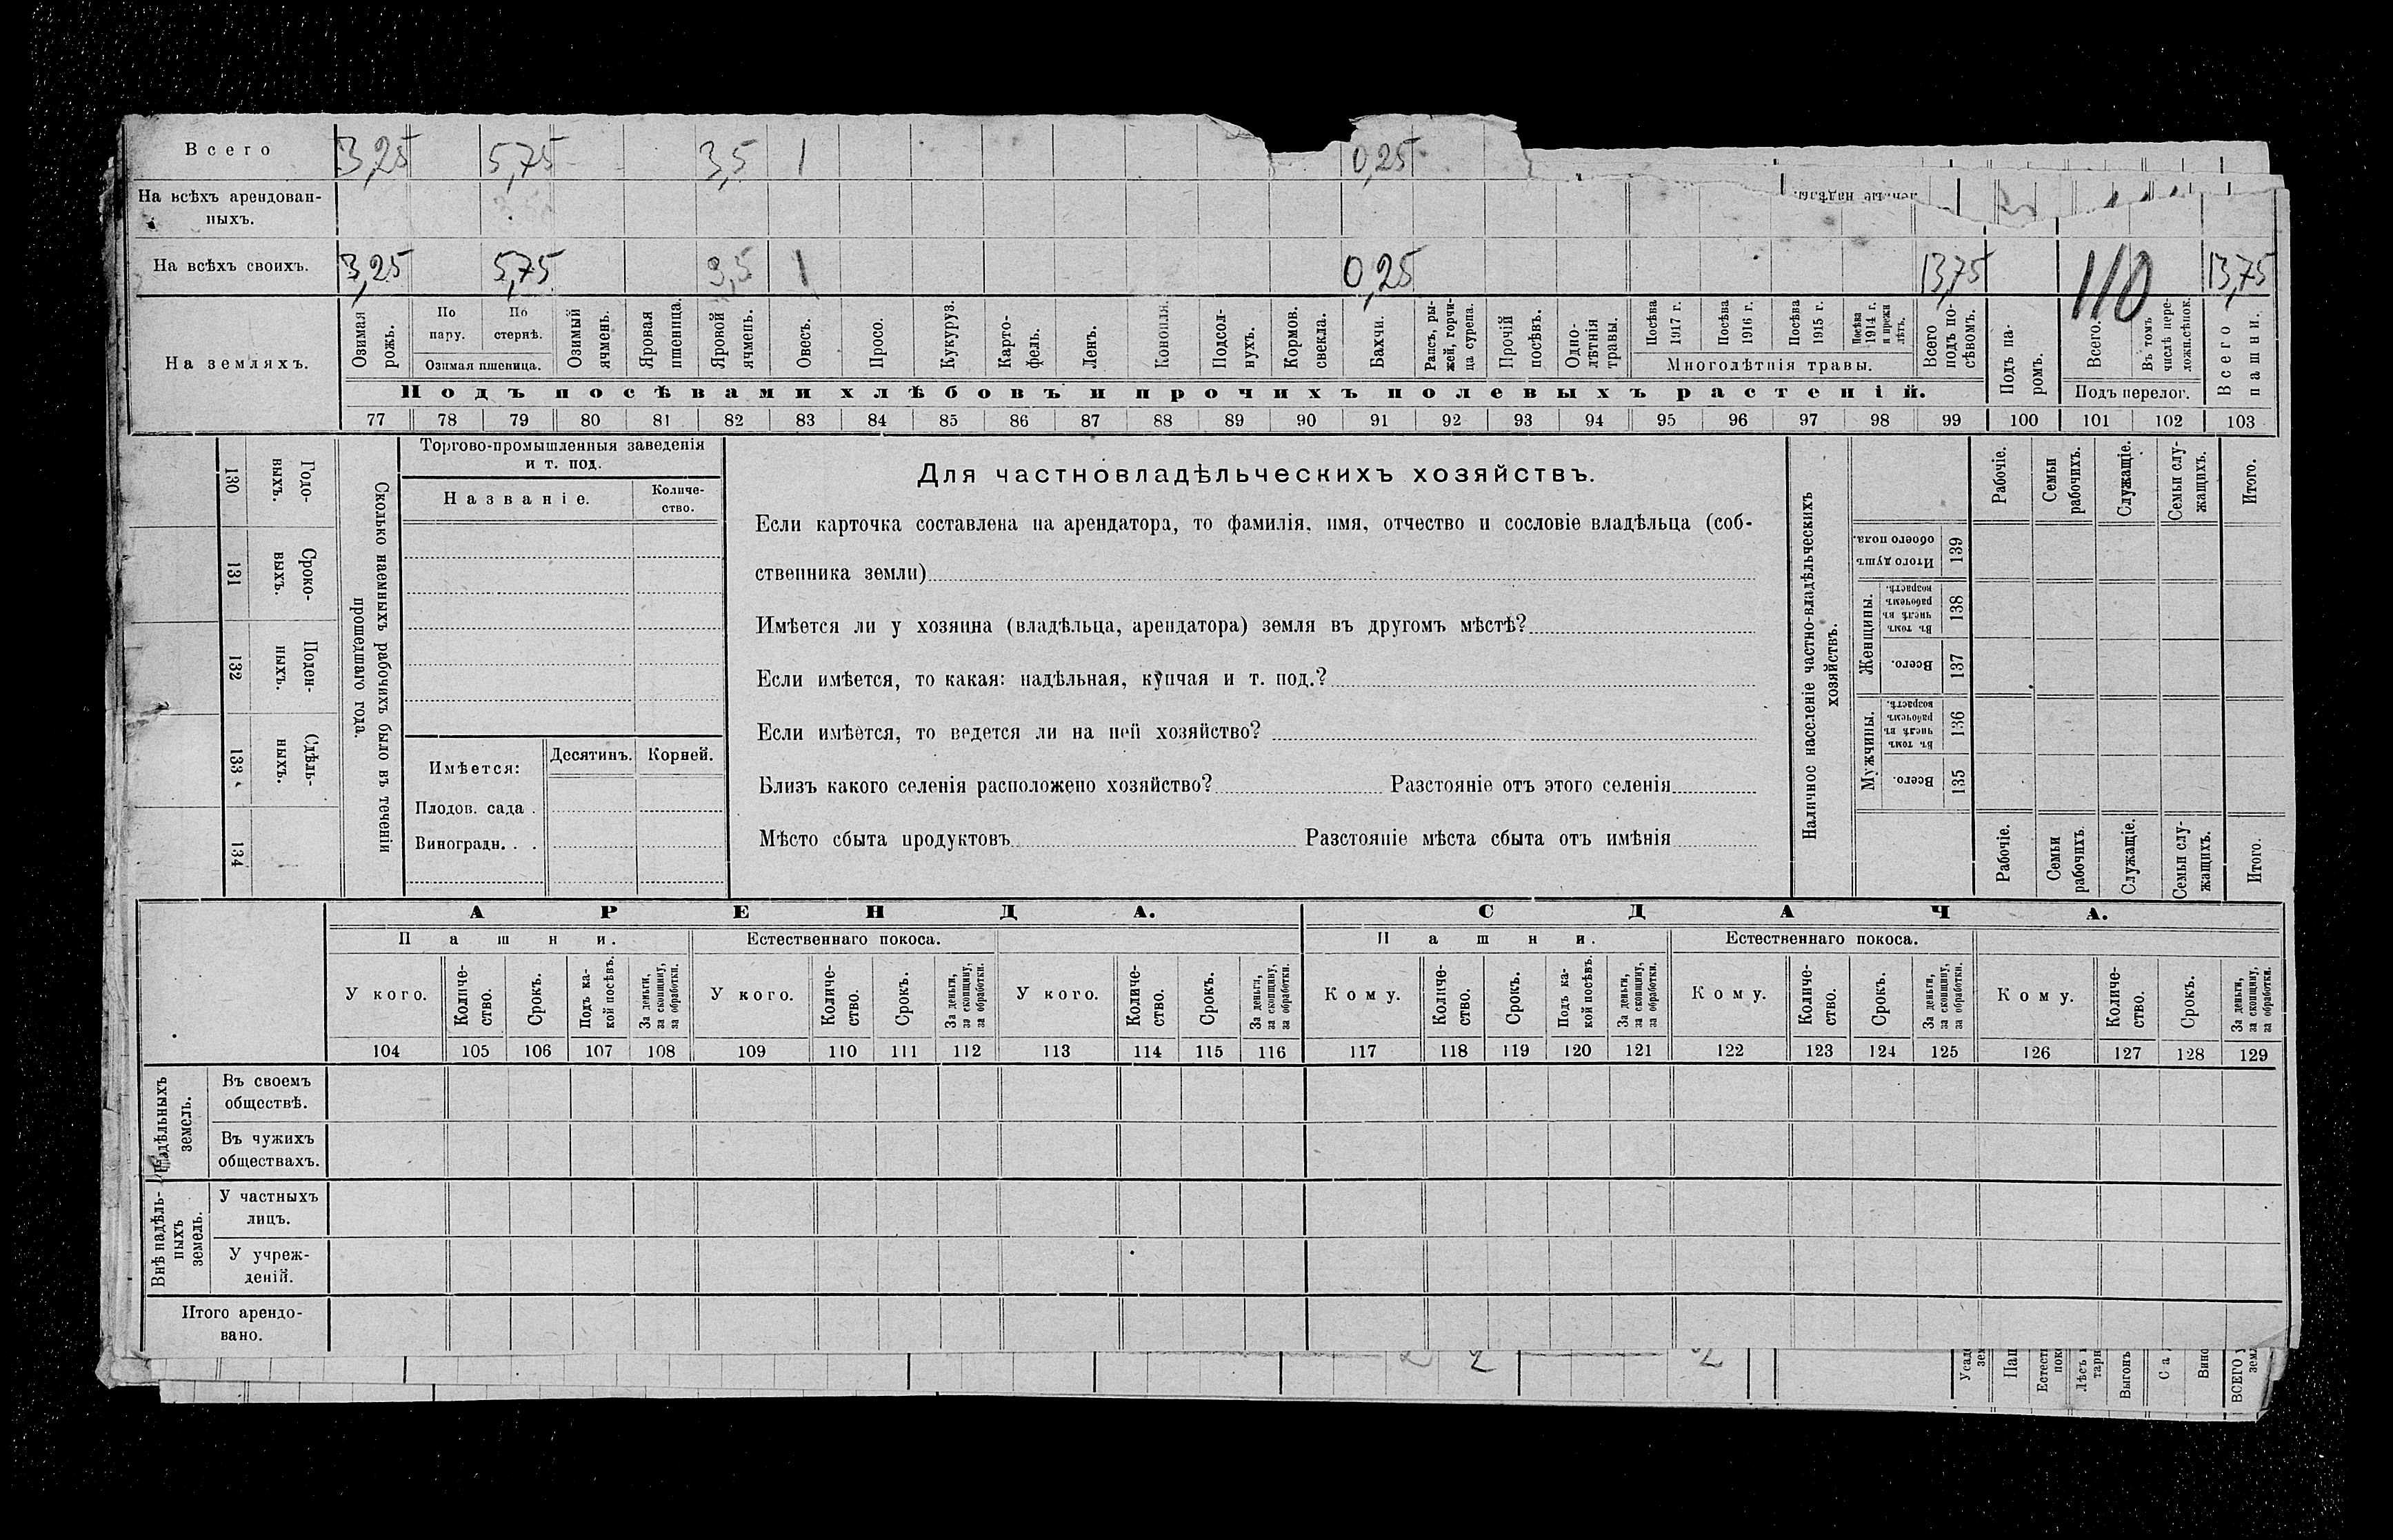 Всего 3,25 5,75 3,5 1 0,25
На всѣхъ арендован-
ныхъ.
На всѣхъ своихъ. 3,25 5,75 3,5 1 0,25 13,75 110 13,75
На земляхъ.
Озимая рожь.
По пару.
По стернѣ.
Озимая пшеница.
Озимый ячмень.
Яровая пшеница.
Яровой ячмень.
Овесъ.
Просо.
Кукуруз.
Карто-
фель.
Ленъ.
Конопля.
Подсол-
нухъ.
Кормов. свекла.
Бахчи.
Рапсъ, ры-
жей, горчи-
ца сурепа.
Прочій посѣвъ.
Одно-
лѣтнія травы.
Посѣва 1917 г.
Посѣва 1916 г.
Посѣва 1915 г.
Посѣва 1914 г. и прежн лѣтъ.
Многолѣтнія травы.
Всего подъ по-
сѣвомъ.
Подъ па-
ромъ.
Всего.
Въ томъ числѣ пере-
ложн.сѣнок.
Подъ перелог.
Всего пашни.
Подъ посѣвами хлѣбовъ и прочихъ полевыхъ растеній.
77 78 79 80 81 82 83 84 85 86 87 88 89 90 91 92 93 94 95 96 97 98 99 100 101 102 103
130 Годо-
выхъ.
131 Сроко-
выхъ.
132 Поден-
ныхъ.
133 Сдѣль-
ныхъ.
134
Сколько наемныхъ рабочихъ было въ теченіи
прошедшаго года.
Торгово-промышленныя заведенія
и т. под.
Названіе.
Количе-
ство.
Имѣется:
Десятинъ. Корней.
Плодов. сада .
Виноградн. . .
Для частновладѣльческихъ хозяйствъ.
Если карточка составлена на арендатора, то фамилія, имя, отчество и сословіе владѣльца (соб-
ственника земли)
Имѣется ли у хозяина (владѣльца, арендатора) земля въ другомъ мѣстѣ?
Если имѣется, то какая: надѣльная, купчая и т. под.?
Если имѣется, то ведется ли на ней хозяйство?
Близъ какого селенія расположено хозяйство? Разстояніе отъ этого селенія
Мѣсто сбыта продуктовъ Разстояніе мѣста сбыта отъ имѣнія
Наличное населеніе частно-владѣльческихъ
хозяйствъ.
Рабочіе.
Семьи рабочихъ.
Служащіе.
Семьи слу-
жащихъ.
Итого.
Итого душъ обоего пола. 139
Женщины.
Въ томъ числѣ въ рабочемъ возрастѣ. 138
Всего. 137
Мужчины.
Въ томъ числѣ въ рабочемъ возрастѣ. 136
Всего. 135
Рабочіе.
Семьи рабочихъ.
Служащіе.
Семьи слу-
жащихъ.
Итого.
АРЕНДА. СДАЧА.
Пашни. Естественнаго покоса. Пашни. Естественнаго покоса.
У кого.
Количе-
ство.
Срокъ.
Подъ ка-
кой посѣвъ.
За деньги,
за скопщину,
за обработки.
У кого.
Количе-
ство.
Срокъ.
За деньги,
за скопщину,
за обработки.
У кого.
Количе-
ство.
Срокъ.
За деньги,
за скопщину,
за обработки.
Кому.
Количе-
ство.
Срокъ.
Подъ ка-
кой посѣвъ.
За деньги,
за скопщину,
за обработки.
Кому.
Количе-
ство.
Срокъ.
За деньги,
за скопщину,
за обработки.
Кому.
Количе-
ство.
Срокъ.
За деньги,
за скопщину,
за обработки.
104 105 106 107 108 109 110 111 112 113 114 115 116 117 118 119 120 121 122 123 124 125 126 127 128 129
Надѣльныхъ земель.
Въ своемъ
обществѣ.
Въ чужихъ
обществахъ.
Внѣ надѣль-
ныхъ
земель.
У частныхъ
лицъ.
У учреж-
деній.
Итого арендо-
вано.
2 2 2